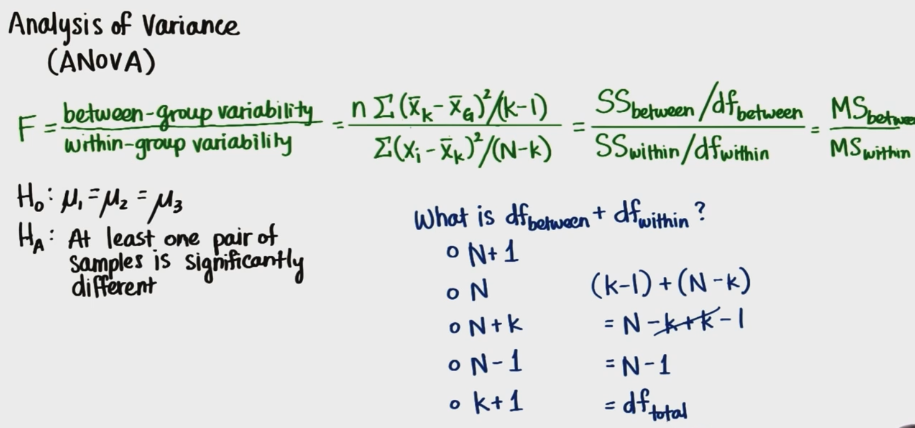 Analysis of Variance
(ANOVA)
F = between-group variability / within-group variability = n Σ(x̄ₖ - x̄_G)²/(k-1) / Σ(xᵢ - x̄ₖ)²/(N-k) = SS_between/df_between / SS_within/df_within = MS_betwee / MS_within
H₀: μ₁ = μ₂ = μ₃
H_A: At least one pair of
samples is significantly
different
What is df_between + df_within?
o N+1
o N
o N+k
o N-1
o k+1
(k-1) + (N-k)
= N -k+k -1
= N-1
= df_total